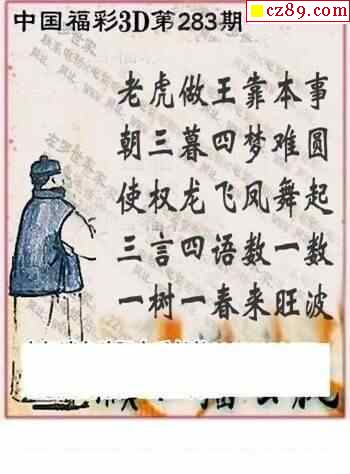 cz89.com
中国福彩3D第283期
老虎做王靠本事
朝三暮四梦难圆
使权龙飞凤舞起
三言四语数一数
一树一春来旺波